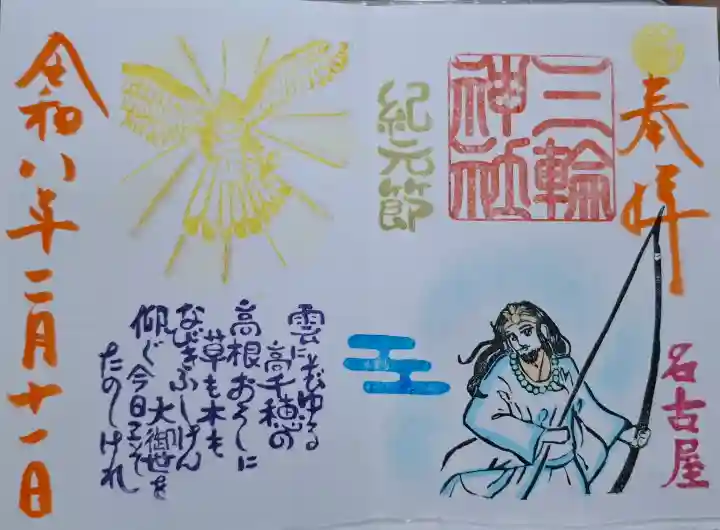 奉拝
三輪
神社
紀元節
名古屋
雲にそびゆる
高千穂の
高根おろしに
草も木も
なびきふしけん
大御世を
仰ぐ今日こそ
たのしけれ
令和八年二月十一日